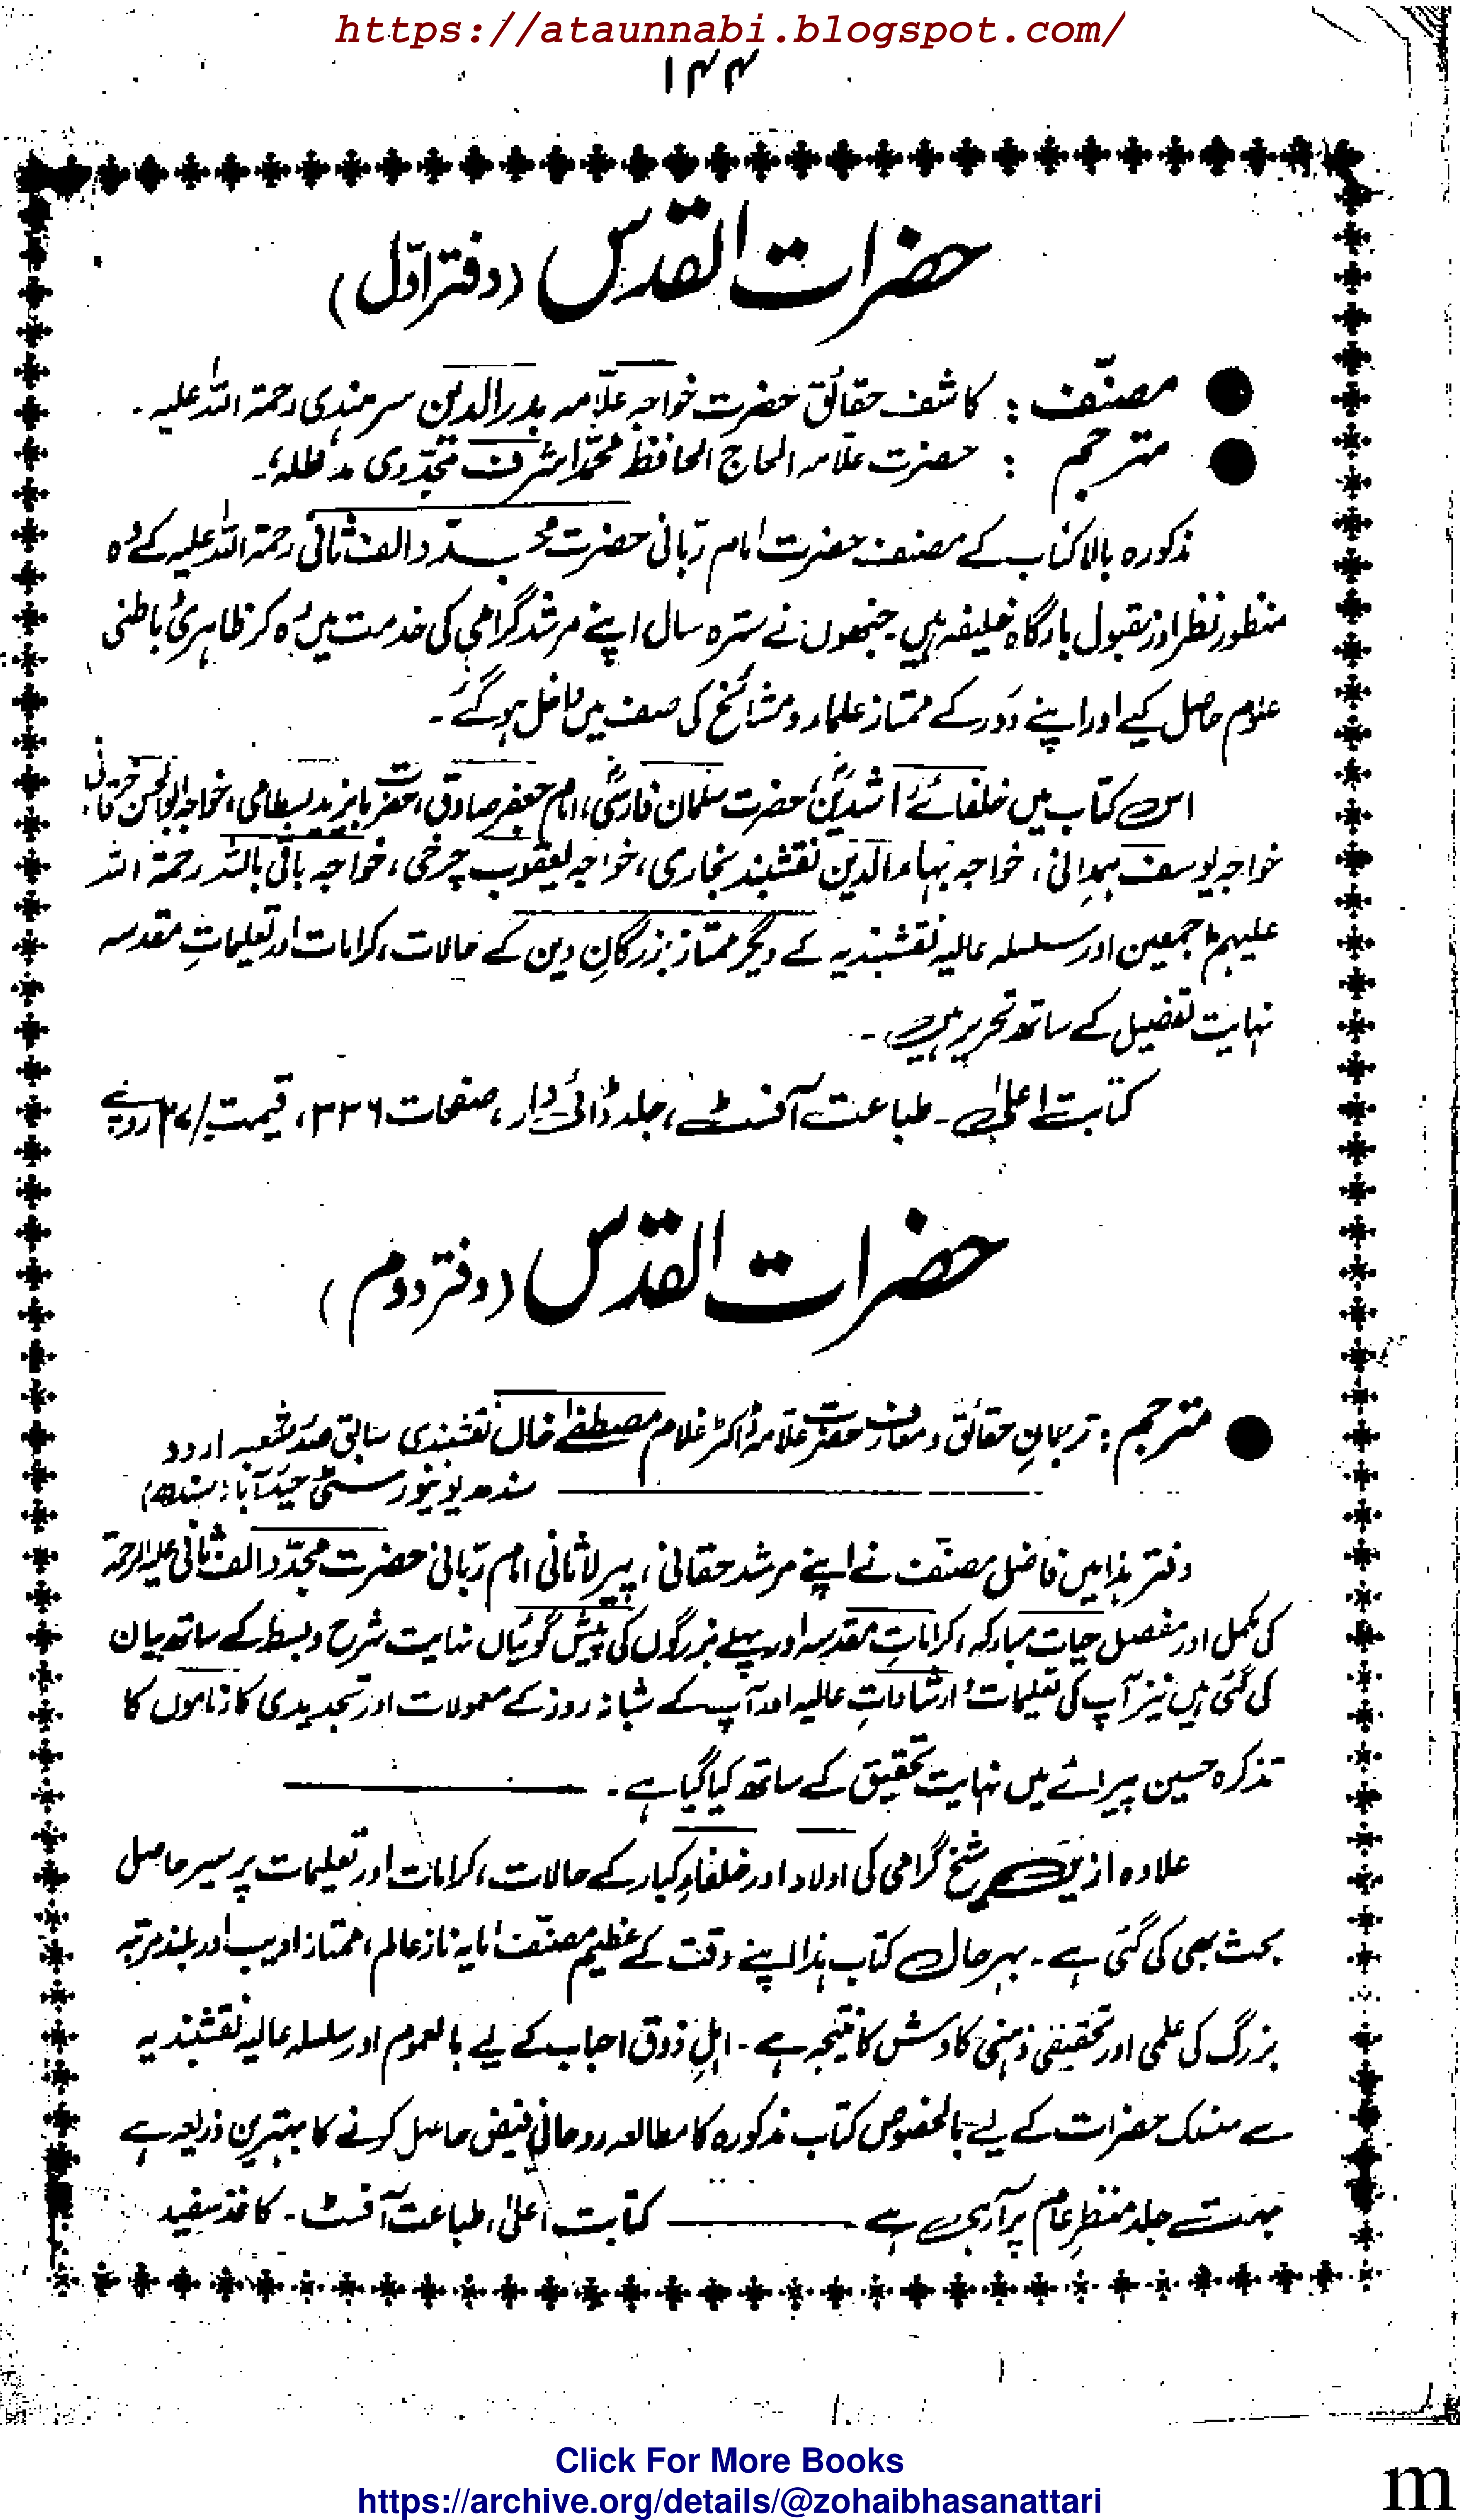 https://ataunnabi.blogspot.com/
۱۴۴
حضرات القدس (دفتر اوّل)
● مصنّف : کاشف حقائق حضرت خواجہ علّامہ بدر الدین سرہندی رحمۃ اللہ علیہ۔
● مترجم : حضرت علّامہ الحاج الحافظ محمّد اشرف مجدّدی مدظلہٗ۔
مذکورہ بالا کتاب کے مصنف حضرت امام ربّانی حضرت مجدّد الف ثانی رحمۃ اللہ علیہ کے وُہ
منظورِ نظر اور مقبول بارگاہ خلیفہ ہیں۔ جنھوں نے سترہ سال اپنے مرشد گرامی کی خدمت میں رہ کر ظاہری و باطنی
علوم حاصل کیے اور اپنے دَور کے ممتاز علماء و مشائخ کی صف میں داخل ہو گئے۔
اس کتاب میں خلفائے راشدینؓ، حضرت سلمان فارسیؓ، امام جعفر صادق، حضرت بایزید بسطامی، خواجہ ابوالحسن خرقانی،
خواجہ یوسف ہمدانی، خواجہ بہاء الدین نقشبند بخاری، خواجہ یعقوب چرخی، خواجہ باقی باللہ رحمۃ اللہ
علیہم اجمعین اور سلسلہ عالیہ نقشبندیہ کے دیگر ممتاز بزرگانِ دین کے حالات، کرامات اور تعلیماتِ مقدسہ
نہایت تفصیل کے ساتھ تحریر ہیں۔
کتابت اعلیٰ۔ طباعت آفسٹ، جلد ڈائی دار، صفحات ۳۳۶، قیمت /۲۷ روپے
حضرات القدس (دفتر دوم)
● مترجم : ترجمانِ حقائق و معارف حضرت علّامہ ڈاکٹر غلام مصطفےٰ خاں نقشبندی سابق صدر شعبہ اردو
سندھ یونیورسٹی حیدرآباد (سندھ)
دفتر ہذا میں فاضل مصنّف نے اپنے مرشد حقانی، پیر لاثانی امام ربّانی حضرت مجدّد الف ثانی علیہ الرحمۃ
کی مکمل اور مفصل حیات مبارکہ، کراماتِ مقدسہ اور پہلے بزرگوں کی پیش گوئیاں نہایت شرح و بسط کے ساتھ بیان
کی گئی ہیں نیز آپ کی تعلیمات و ارشاداتِ عالیہ اور آپ کے شبانہ روز کے معمولات اور تجدیدی کارناموں کا
تذکرہ حسین پیرائے میں نہایت تحقیق کے ساتھ کیا گیا ہے۔
علاوہ ازیں شیخ گرامی کی اولاد اور خلفاءِ کبار کے حالات، کرامات اور تعلیمات پر سیر حاصل
بحث بھی کی گئی ہے۔ بہرحال کتاب ہذا اپنے وقت کے عظیم مصنّف، مایہ ناز عالم، ممتاز ادیب اور بلند مرتبہ
بزرگ کی علمی اور تحقیقی ذہنی کاوش کا نتیجہ ہے۔ اہلِ ذوق احباب کے لیے بالعموم اور سلسلہ عالیہ نقشبندیہ
سے منسلک حضرات کے لیے بالخصوص کتاب مذکورہ کا مطالعہ روحانی فیض حاصل کرنے کا بہترین ذریعہ ہے
بہت جلد منظرِ عام پر آ رہی ہے کتابت اعلیٰ، طباعت آفسٹ۔ کاغذ سفید
Click For More Books
https://archive.org/details/@zohaibhasanattari
m